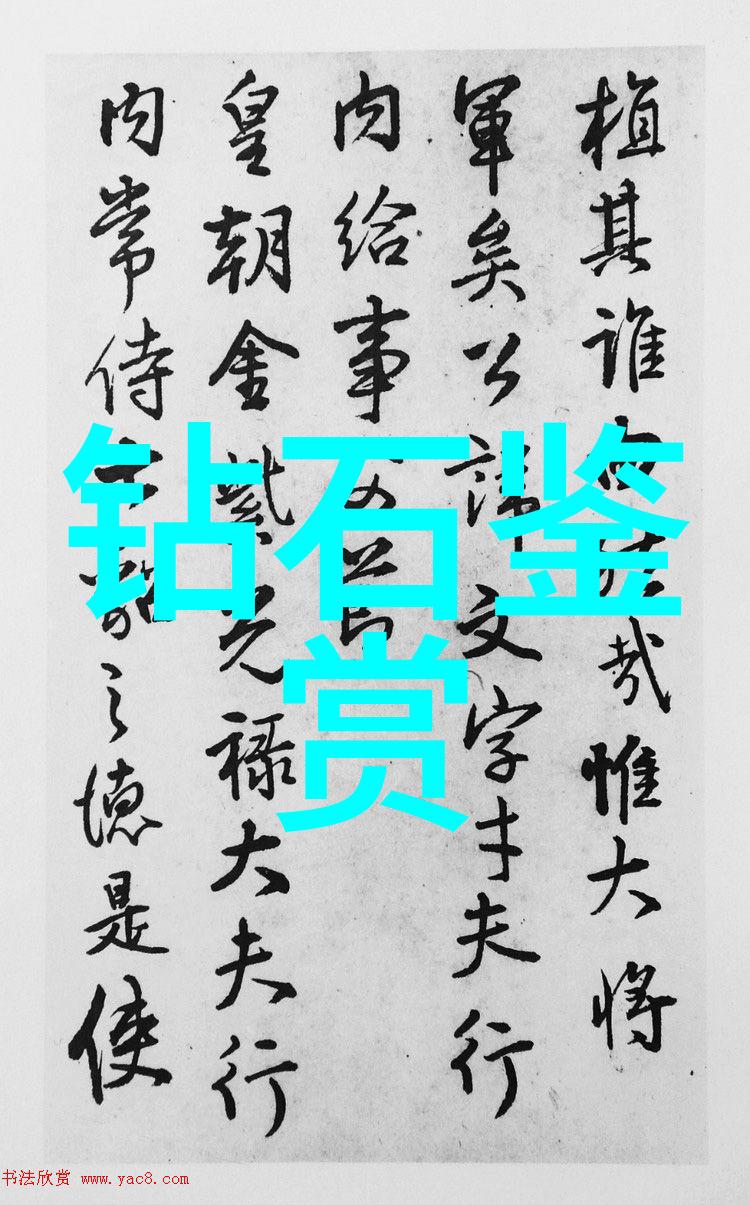 植其誰哉惟大將
軍矣公諱文字才夫行
内給事
皇朝金紫光祿大夫行
内常侍之德是使
钻石鉴
赏
书法欣赏 www.yac8.com